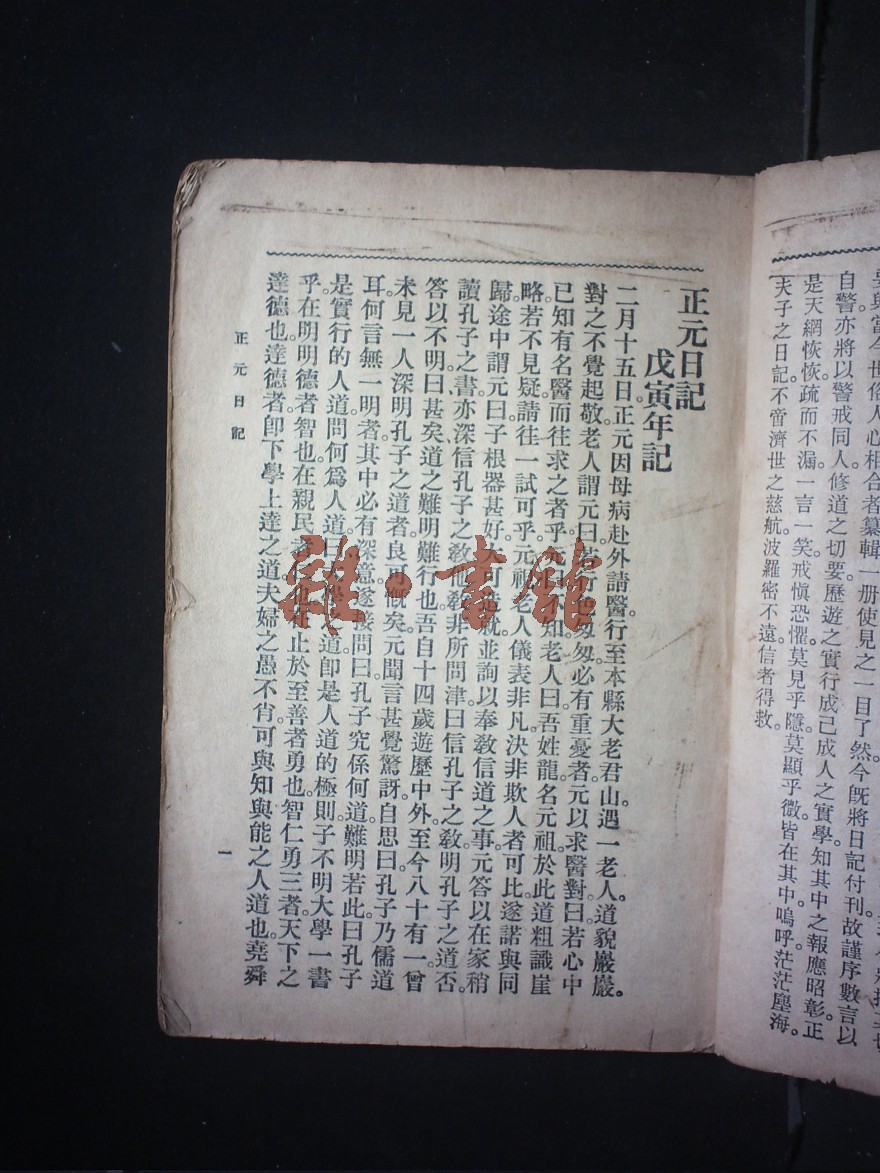 自警亦將以警戒同人修道之切要歷遊之實行成己成人之實學知其中之報應昭彰正
是天網恢恢疏而不漏。一言一笑戒愼恐懼莫見乎隱莫顯乎微皆在其中嗚呼茫茫塵海。
夫子之日記不啻濟世之慈航波羅密不遠信者得救。
正元日記
戊寅年記
二月十五日正元因母病赴外請醫。行至本縣大老君山。遇一老人。道貌巖巖。
對之不覺起敬。老人謂元曰。若行色匆匆。必有重憂者。元以求醫對。曰若心中
已知有名醫而往求之者乎。元曰不知。老人曰。吾姓龍名元祖。於此道粗識崖
略。若不見疑。請往一試可乎。元視老人儀表非凡。決非欺人者可比。遂諾與同
歸。途中謂元曰。子根器甚好。大可造就。並詢以奉敎信道之事。元答以在家稍
讀孔子之書。亦深信孔子之敎。他敎非所問津。曰信孔子之敎。明孔子之道否。
答以不明。曰甚矣。道之難明難行也。吾自十四歲遊歷中外。至今八十有一。曾
未見一人深明孔子之道者。良可慨矣。元聞言甚覺驚訝。自思曰。孔子乃儒道
耳。何言無一明者。其中必有深意。遂接問曰。孔子究係何道。難明若此。曰孔子
是實行的人道。問何爲人道。曰大學之道。卽是人道的極則。子不明大學一書
乎。在明明德者智也。在親民者仁也。在止於至善者勇也。智仁勇三者。天下之
達德也。達德者。卽下學上達之道。夫婦之愚不肖。可與知與能之人道也。堯舜
正元日記
一
雜·書館